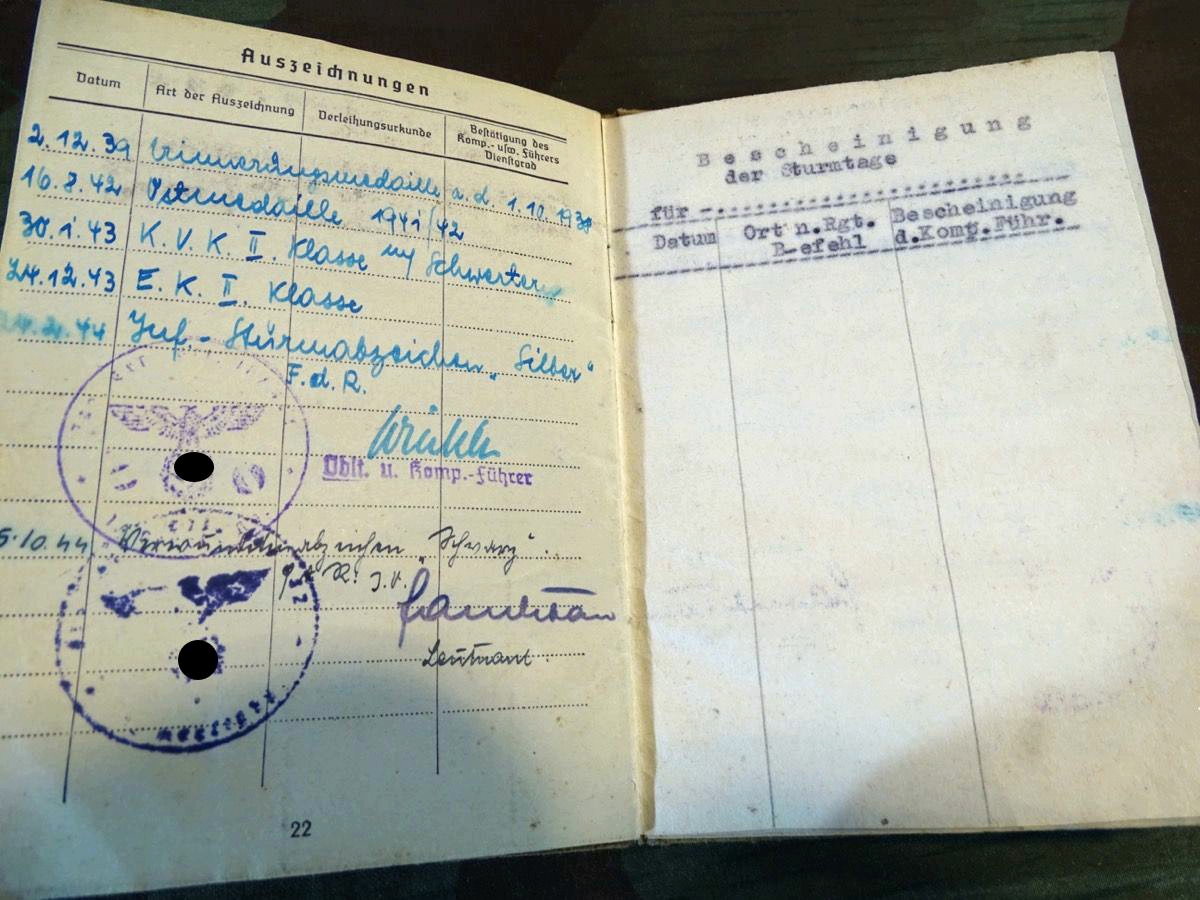 Auszeichnungen
Datum Art der Auszeichnung Verleihungsurkunde Bestätigung des Komp.- usw. Führers Dienstgrad
2.12.39 Erinnerungsmedaille a.d. 1.10.1938
16.8.42 Ostmedaille 1941/42
30.1.43 K.V.K. II. Klasse m/ Schwerter
24.12.43 E.K. II. Klasse
44 Inf.-Sturmabzeichen „Silber"
F.d.R.
Oblt. u. Komp.-Führer
5.10.44 Verwundetenabzeichen „Schwarz".
F.d.R. I.V.
Leutnant.
22
Bescheinigung
der Sturmtage
für
Datum Ort n.Rgt. Befehl Bescheinigung d.Komp.Führ.